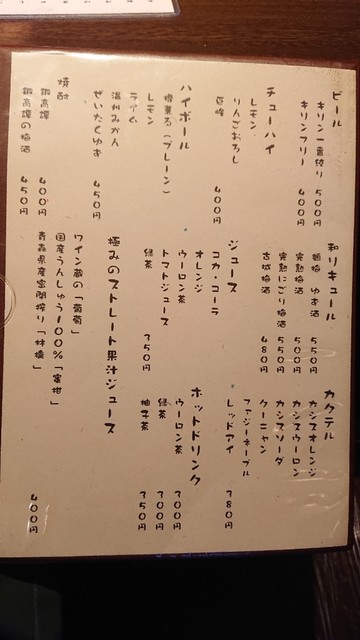 ビール
キリン一番搾り 500円
キリンフリー 400円
チューハイ
レモン
りんごおろし
巨峰 400円
ハイボール
樽薫る(プレーン)
レモン
ライム
温州みかん
ぜいたくゆず 450円
焼酎
鍛高譚 400円
鍛高譚の梅酒 450円
和リキュール
鶴梅 ゆず酒 550円
完熟梅酒 500円
完熟にごり梅酒 550円
古城梅酒 480円
ジュース
コカ・コーラ
オレンジ
ウーロン茶
トマトジュース
緑茶 350円
極みのストレート果汁ジュース
ワイン蔵の「葡萄」
国産うんしゅう100%「蜜柑」
青森県産密閉搾り「林檎」 400円
カクテル
カシスオレンジ
カシスウーロン
カシスソーダ
クーニャン
ファジーネーブル
レッドアイ 380円
ホットドリンク
ウーロン茶 300円
緑茶 300円
柚子茶 350円